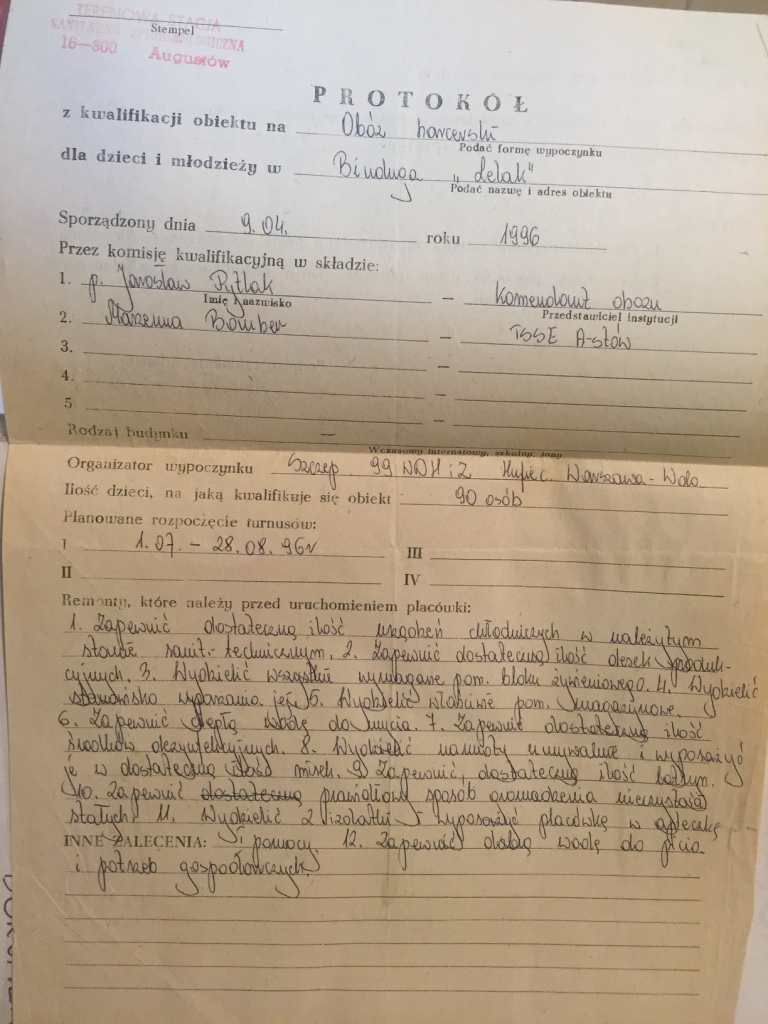 TERENOWA STACJA
Stempel
SANITARNO-EPIDEMIOLOGICZNA
16—300 Augustów
PROTOKÓŁ
z kwalifikacji obiektu na Obóz harcerski
Podać formę wypoczynku
dla dzieci i młodzieży w Binduga „Lelak"
Podać nazwę i adres obiektu
Sporządzony dnia 9.04. roku 1996
Przez komisję kwalifikacyjną w składzie:
1. p. Jarosław — Komendant obozu
Imię i nazwisko Przedstawiciel instytucji
2. Marzenna Bomber — TSSE A-stów
3. —
4. —
5 —
Rodzaj budynku —
Wczasowy internatowy, szkolny, inny
Organizator wypoczynku Szczep 99 WDH i Z Warszawa - Wola
Ilość dzieci, na jaką kwalifikuje się obiekt 90 osób
Planowane rozpoczęcie turnusów:
I 1.07. – 28.08. 96r III
II IV
Remonty, które należy przed uruchomieniem placówki:
1. Zapewnić dostateczną ilość urządzeń chłodniczych w należytym
stanie sanit.-technicznym. 2. Zapewnić dostateczną ilość desek produk-
cyjnych. 3. Wydzielić wszystkie wymagane pom. bloku żywieniowego. 4. Wydzielić
stanowisko wyparzania jaj. 5. Wydzielić właściwe pom. magazynowe.
6. Zapewnić ciepłą wodę do mycia. 7. Zapewnić dostateczną ilość
środków dezynfekcyjnych. 8. Wydzielić namioty umywalnie i wyposażyć
je w dostateczną ilość misek. 9. Zapewnić dostateczną ilość
10. Zapewnić dostateczną prawidłowy sposób gromadzenia nieczystości
stałych. 11. Wydzielić 2 izolatki i wyposażyć placówkę w apteczkę
INNE ZALECENIA: I pomocy. 12. Zapewnić dobrą wodę do picia
i potrzeb gospodarczych.